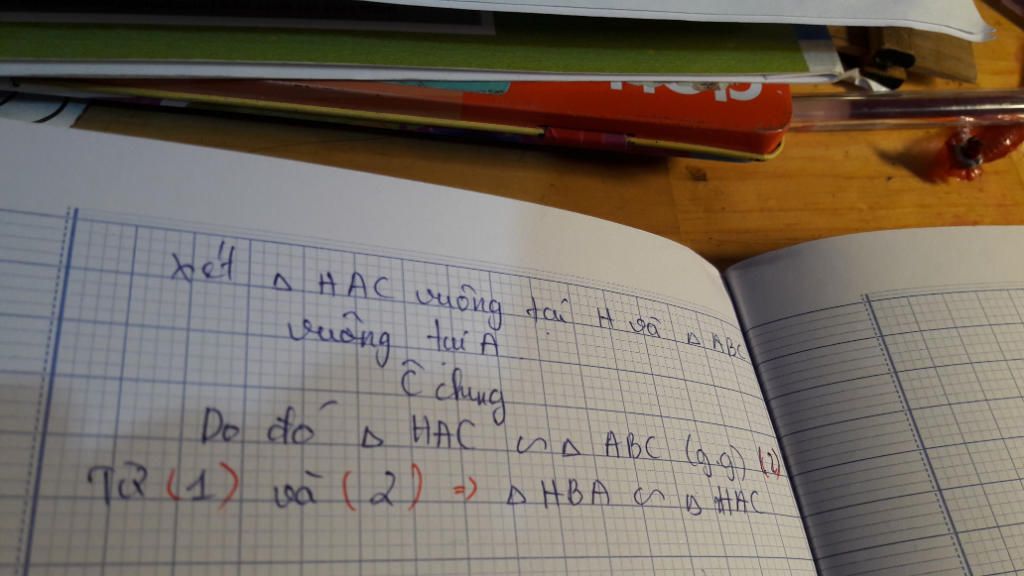 Xét Δ HAC vuông tại H và Δ ABC
vuông tại A
Ĉ chung
Do đó Δ HAC ∽ Δ ABC (g.g) (2)
Từ (1) và (2) ⇒ Δ HBA ∽ Δ HAC